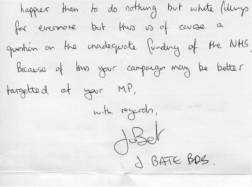 happier than to do nothing but white fillings
for evermore but this is of cause a
question on the inadequate funding of the NHS.
Because of this your campaign may be better
targetted at your MP,
with regards,
J Bat
J BATE BDS.